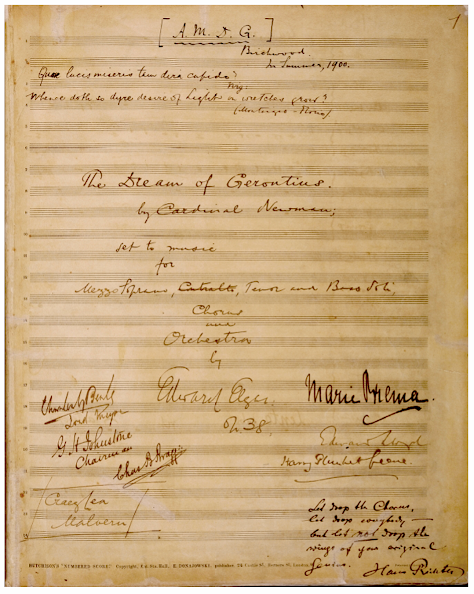 [A. M. D. G.]
1
Birchwood.
In Summer, 1900.
Quae lucis miseris tam dira cupido?
Virg:
Whence doth so dyre desire of Light on wretches grow?
(Montaigne - Florio)
The Dream of Gerontius.
by Cardinal Newman;
set to music
for
Mezzo Soprano, Contralto, Tenor and Bass Soli,
Chorus
and
Orchestra
by
Edward Elgar.
Op. 38.
Marie Brema.
Lord Mayor
G. H. Johnstone
Chairman
Edward Lloyd
Harry Plunket Greene.
Craeg Lea
Malvern
Let drop the Chorus,
let drop everybody —
but let not drop the
wings of your original
genius.
Hans Richter